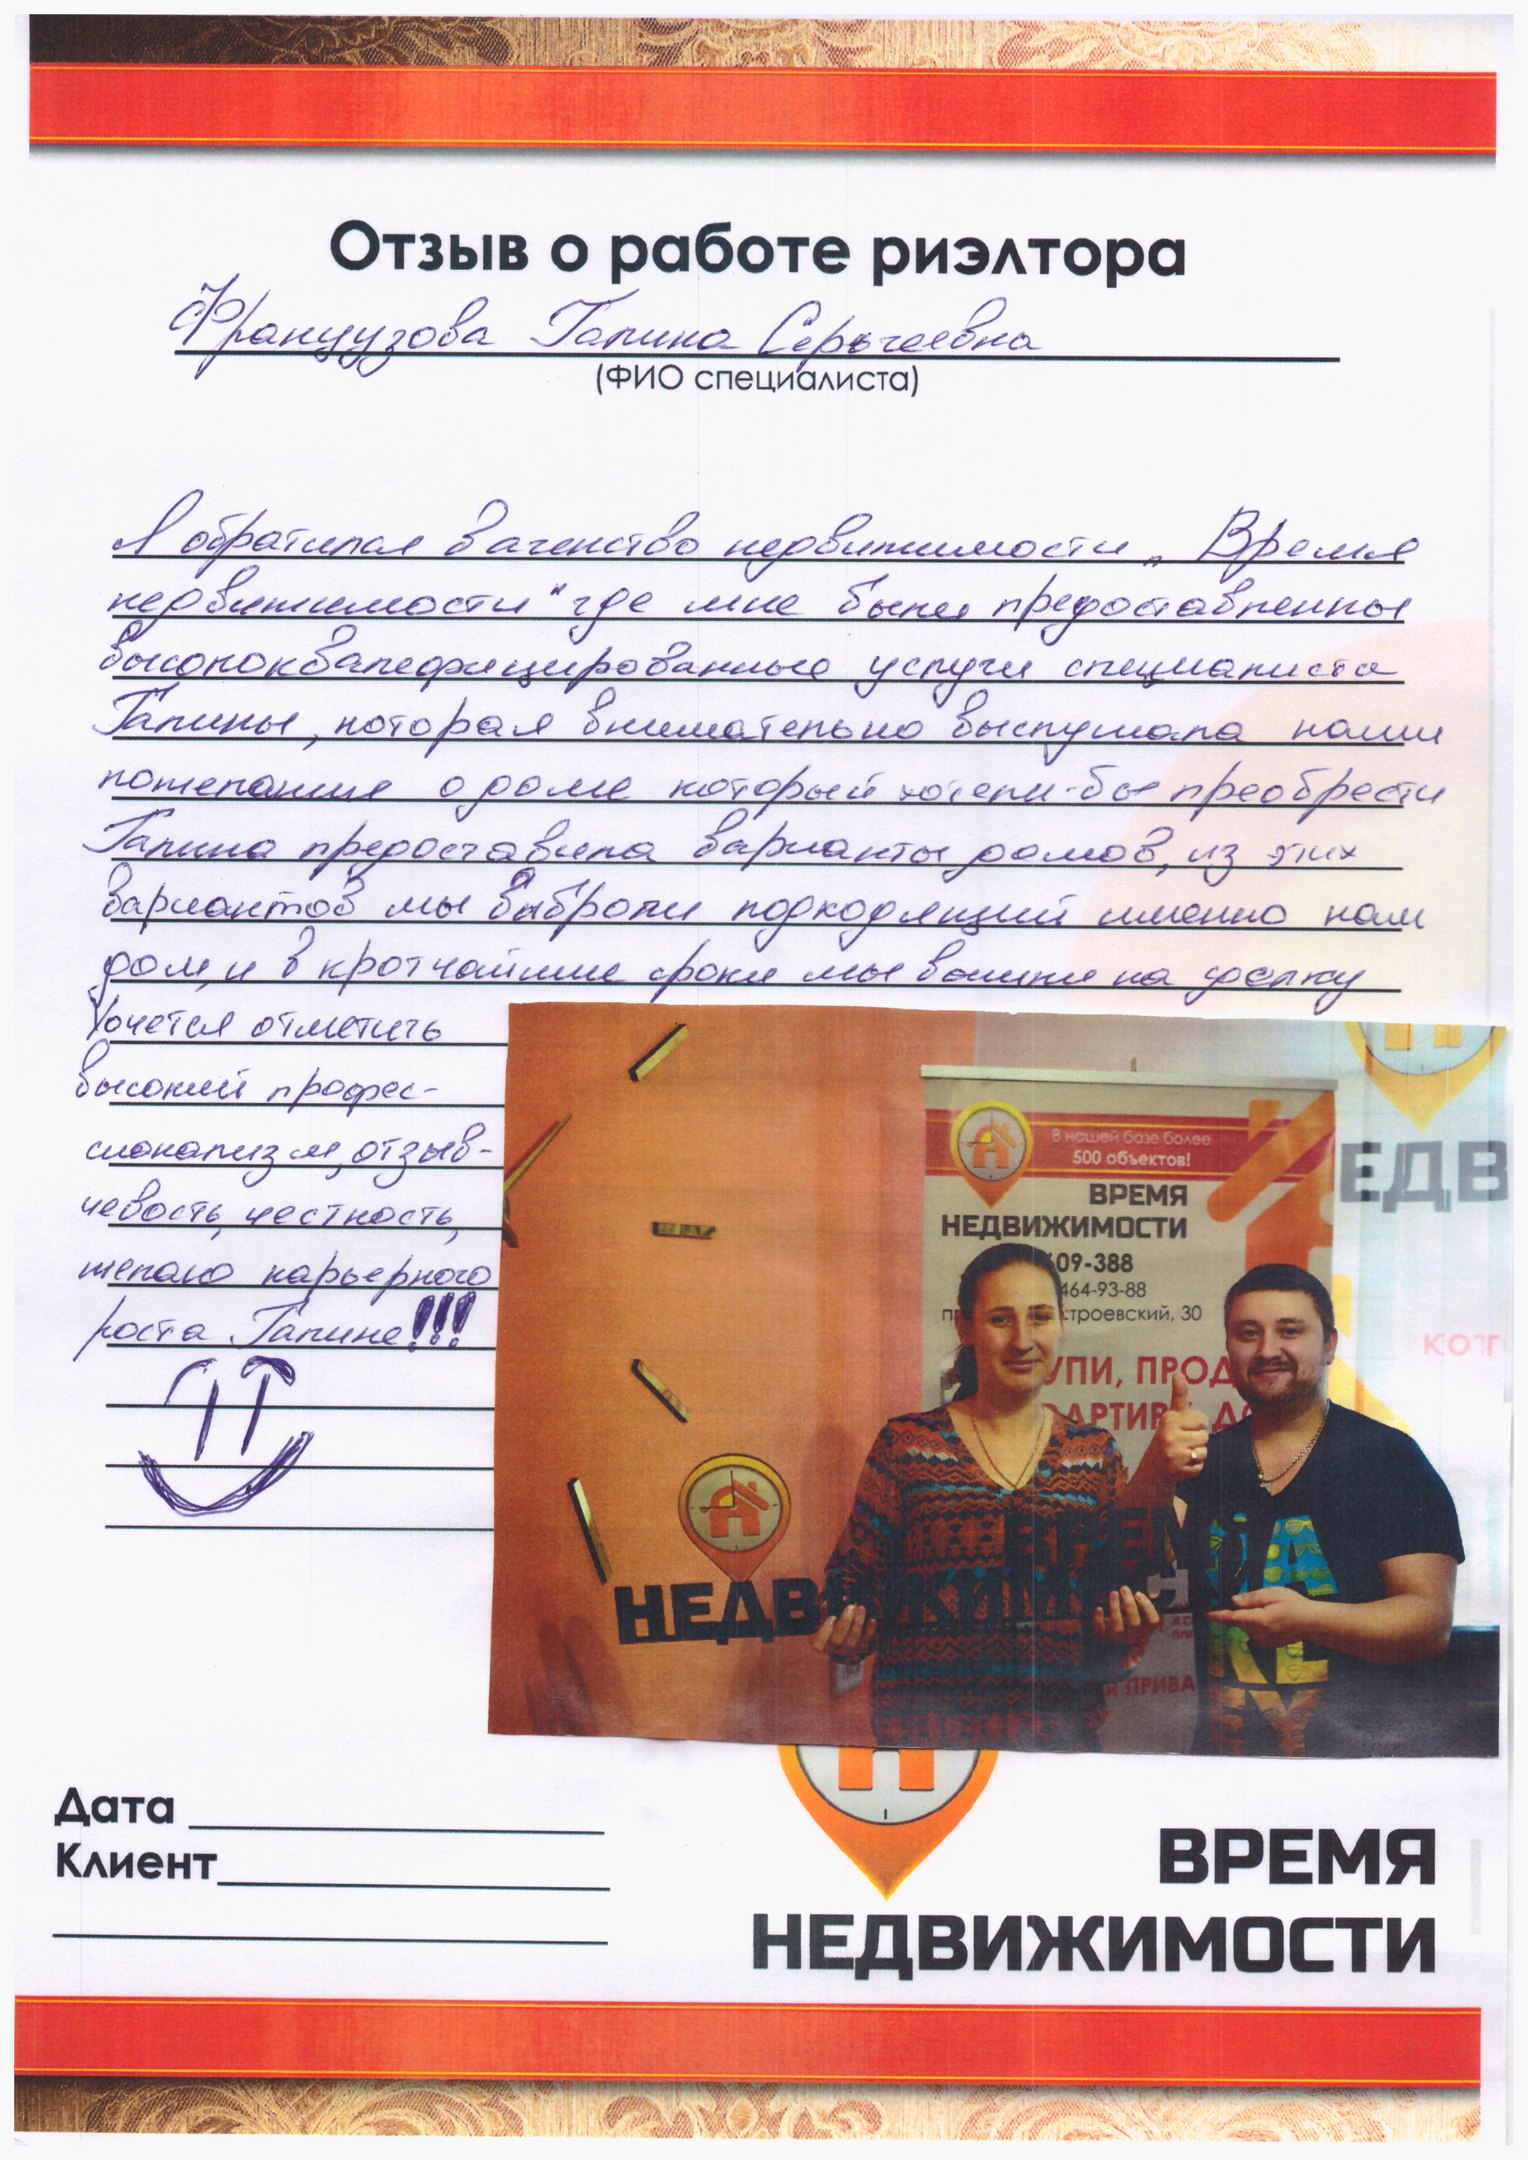 Отзыв о работе риэлтора
Французова Галина Сергеевна
(ФИО специалиста)
Я обратился в агенство недвижимости „Время
недвижимости" где мне были предоставленны
высококвалефицированные услуги специалиста
Галины, которая внимательно выслушала наши
пожелания о доме который хотели-бы преобрести
Галина предоставила варианты домов, из этих
вариантов мы выброли подходящий именно нам
дом, и в кротчайшие сроки мы вышли на сделку
Хочется отметить
высокий профес-
сионализм, отзыв-
чевость, честность,
желаю карьерного
роста Галине!!!
В нашей базе более
500 объектов!
ВРЕМЯ
НЕДВИЖИМОСТИ
09-388
464-93-88
строевский, 30
УПИ, ПРОД
АРТИР
ЕДВ
ВРЕМ
НЕДВИЖИМОС
ПРИВА
Дата
Клиент
ВРЕМЯ
НЕДВИЖИМОСТИ